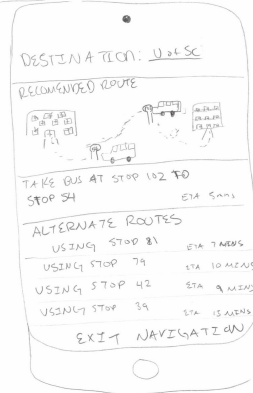 DESTINATION: U of SC
RECOMENDED ROUTE
TAKE BUS AT STOP 102 TO
STOP 54
ETA 5mns
ALTERNATE ROUTES
USING STOP 81 ETA 7 MINS
USING STOP 79 ETA 10 MINS
USING STOP 42 ETA 9 MINS
USING STOP 39 ETA 15 MINS
EXIT NAVIGATION